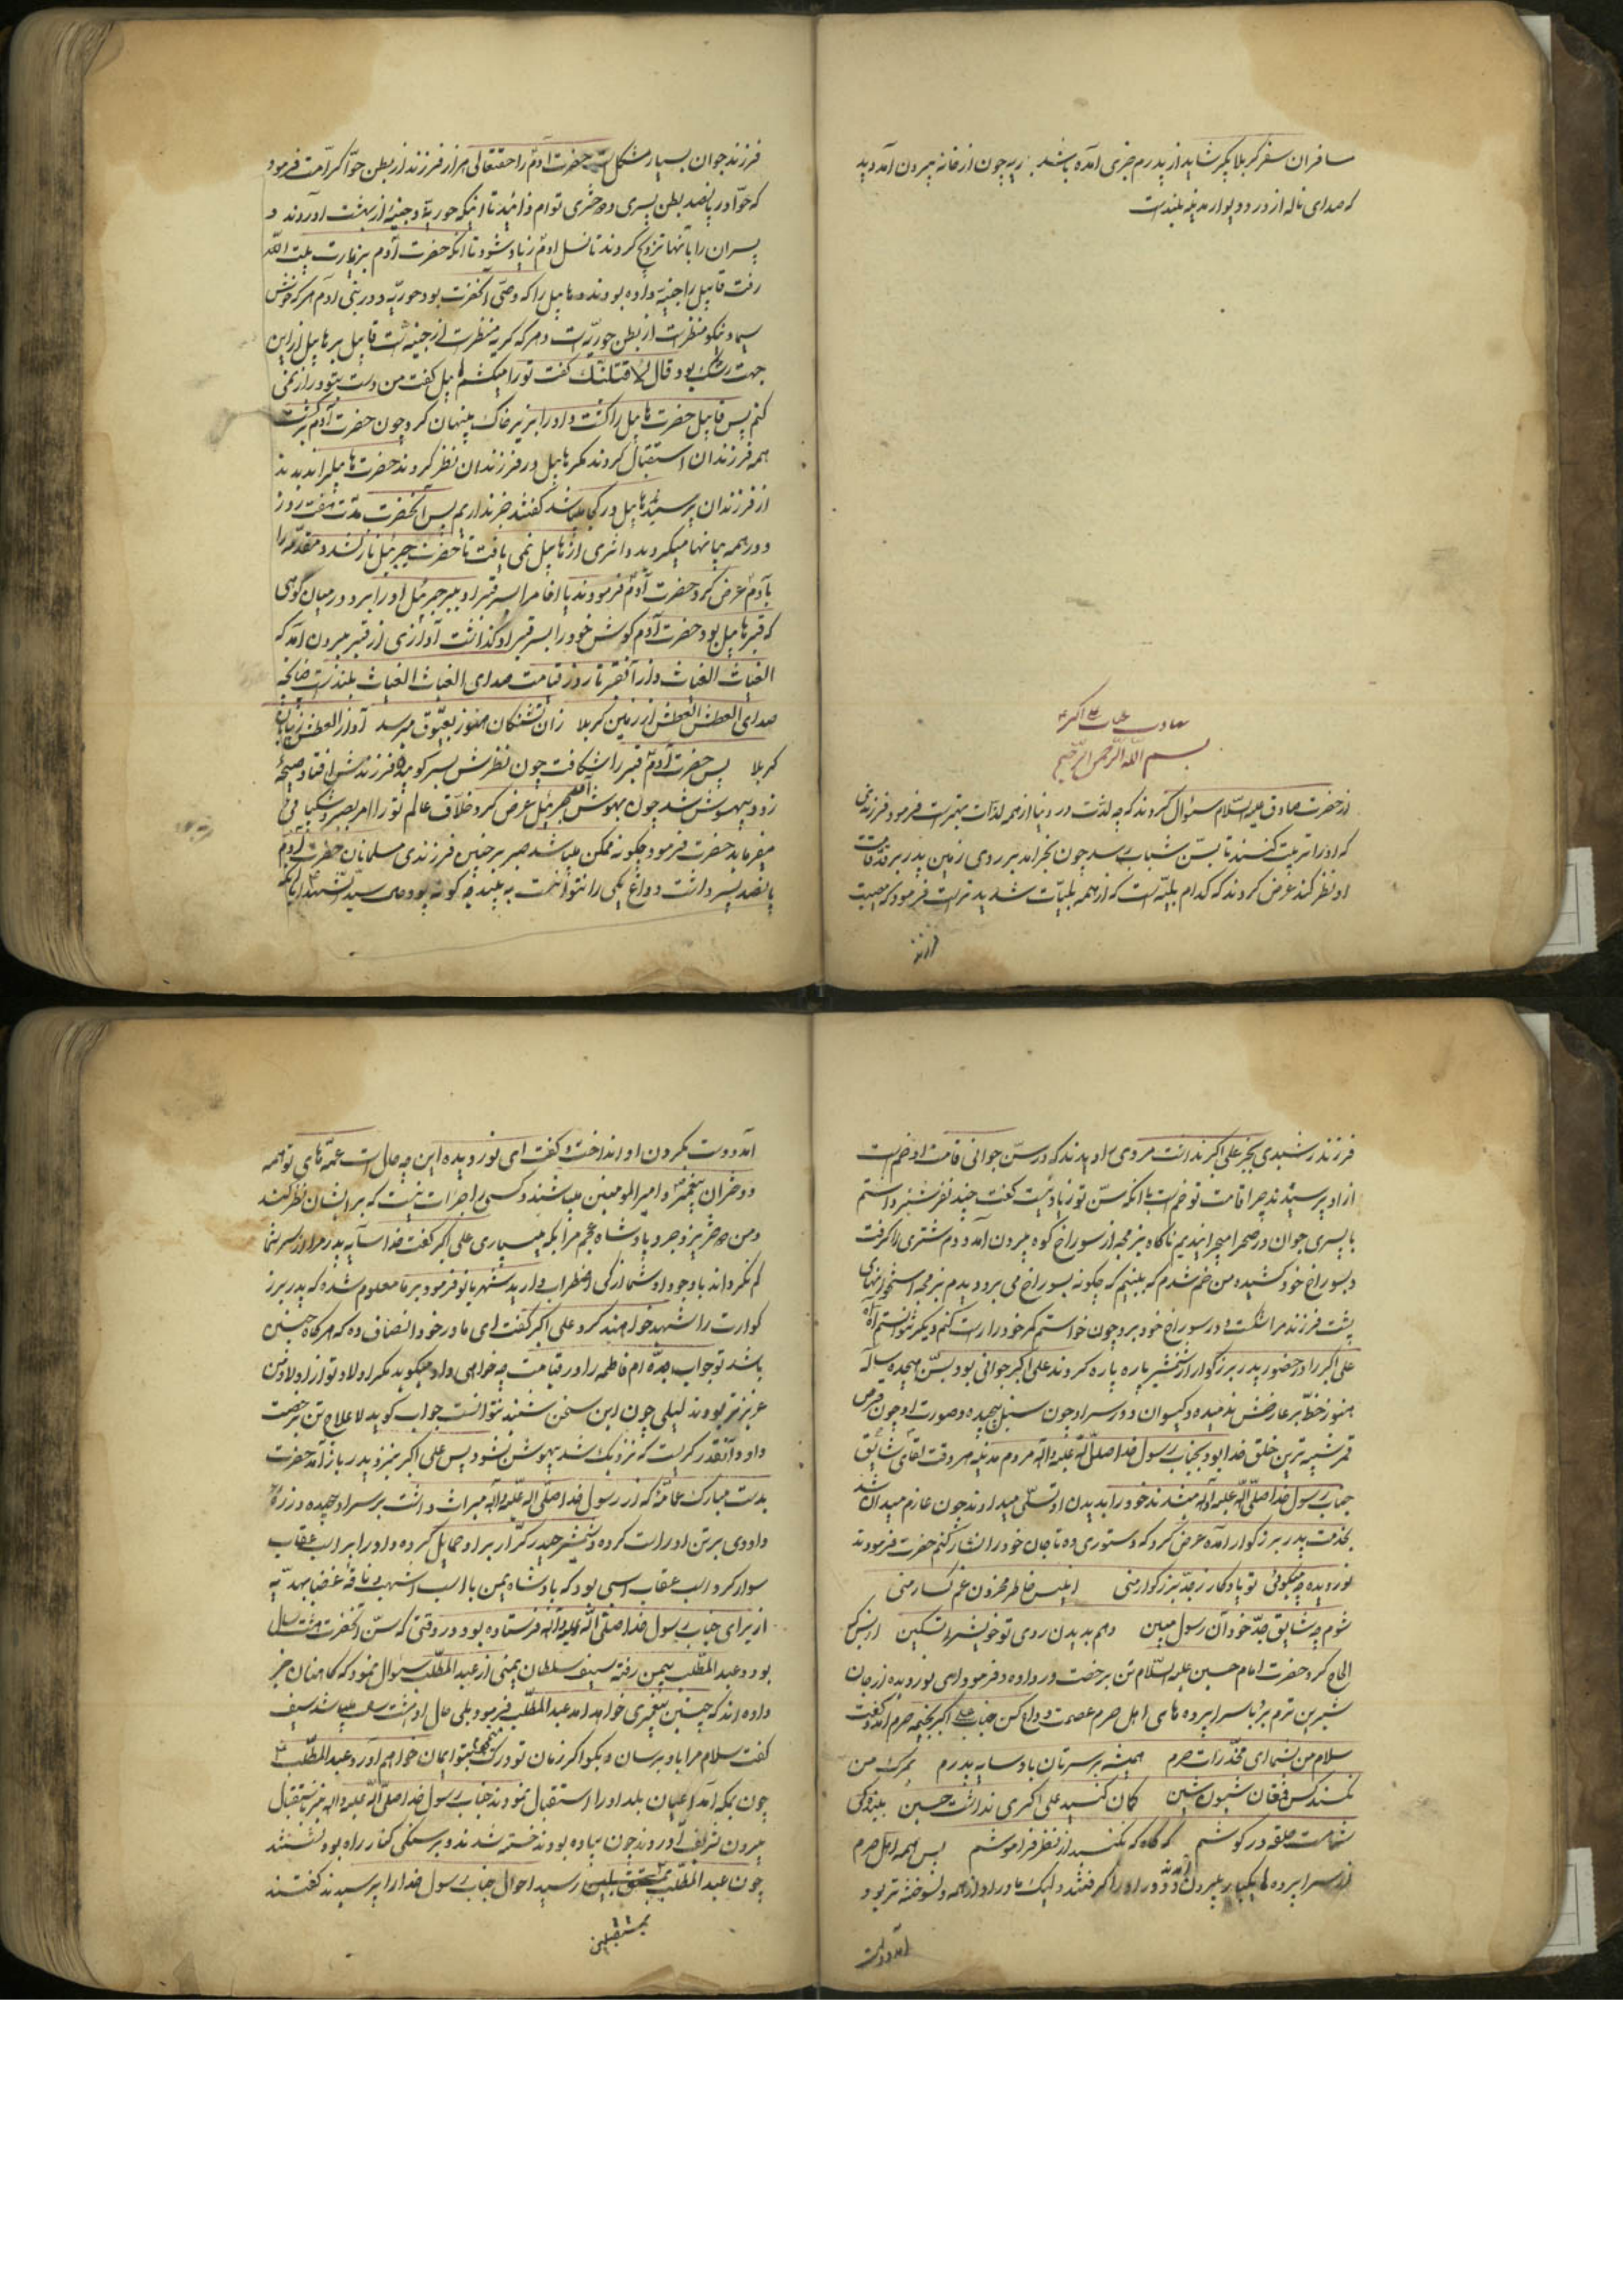 مسافران سفر کربلا بگیر شاید از پدرم خبری آمده باشد چون از خانه بیرون آمد دید
که صدای ناله از در و دیوار مدینه بلند است
علی اکبر
بسم الله الرحمن الرحیم
از حضرت صادق علیه السلام سؤال کردند که چه لذت در دنیا از همه لذات بهتر است فرمود فرزندی
که او را تربیت کنند تا بسن شباب رسد چون بخرامد بر روی زمین پدر بر قد و قامت
او نظر کند عرض کردند که کدام بلیه است که از همه بلیات شدیدتر است فرمود که مصیبت
فرزند
فرزند جوان بسیار مشکل است حضرت آدم را حقتعالی هزار فرزند از بطن حوا کرامت فرمود
که حوا در پانصد بطن پسری و دختری توام زائید تا انیکه حوریه و جنیه از بهشت آوردند و
پسران را بآنها تزویج کردند تا نسل آدم زیاد شود تا آنکه حضرت آدم بزیارت بیت الله
رفت قابیل را جنیه داده بودند و هابیل را که وصی آنحضرت بود حوریه و در بنی آدم هر که خوش
سیما و نیکو منظر است از بطن حوریه است و هر که کریه منظر است از جنیه است قابیل بر هابیل از این
جهت رشک بود قال لاقتلنک گفت تو را میکشم هابیل گفت من دست بتو دراز نمی
کنم پس قابیل حضرت هابیل را کشت و او را بزیر خاک پنهان کرد چون حضرت آدم برگشت
همه فرزندان استقبال کردند مگر هابیل در فرزندان نظر کردند حضرت هابیل را ندیدند
از فرزندان پرسید هابیل در کجا میباشد گفتند خبر نداریم پس آنحضرت مدت هفت روز
و در همه بیابانها میگردید و اثری از هابیل نمی یافت تا حضرت جبرئیل نازل شد و مقدمه را
بآدم عرض کرد حضرت آدم فرمودند یا اخا مرا بسر قبر او ببر جبرئیل او را برد در میان کوهی
که قبر هابیل بود حضرت آدم گوش خود را بسر قبر او گذاشت آوازی از قبر بیرون آمد که
الغیاث الغیاث و از آنقبر تا روز قیامت صدای الغیاث الغیاث بلند است چنانکه
صدای العطش العطش از زمین کربلا زان تشنگان هنوز بعیوق میرسد آواز العطش ز بیابان
کربلا پس حضرت آدم قبر را شکافت چون نظرش بسر کوبیده فرزندش افتاد صیحه
زد و بیهوش شد چون بهوش آمد جبرئیل عرض کرد خلاق عالم تو را امر بصبر و شکیبائی
میفرماید حضرت فرمود چگونه ممکن میباشد صبر بر چنین فرزندی مسلمانان حضرت آدم
پانصد پسر داشت و داغ یکی را نتوانست به بیند چه گونه بود حال سید الشهدا با آنکه
فرزند رشیدی بجز علی اکبر نداشت مردی را دیدند که در سن جوانی قامت او خم است
از او پرسیدند چرا قامت تو خم است با آنکه سن تو زیاد نیست گفت چند نفر شتر داشتم
با پسری جوان در صحرا میچرانیدیم ناگاه بزمجه از سوراخ کوه بیرون آمد و دم شتری را گرفت
و بسوراخ خود کشیده من خم شدم که ببینم که چگونه بسوراخ می برد دیدم بزمجه استخوانهای
پشت فرزند مرا شکست و در سوراخ خود برد چون خواستم کمر خود را راست کنم دیگر نتوانستم آه
علی اکبر را در حضور پدر بزرگوار از شمشیر پاره پاره کردند علی اکبر جوانی بود بسن هیجده ساله
هنوز خط بر عارضش ندمیده و گیسوان دور سر او چون سنبل پیچیده و صورت او چون قرص
قمر شبیه ترین خلق خدا بود بجناب رسول خدا صلی الله علیه و آله مردم مدینه هر وقت لقای شایق
جناب رسول خدا صلی الله علیه و آله میشدند خود را بدیدن او تسلی میدادند چون عازم میدان شد
بخدمت پدر بزرگوار آمده عرض کرد که دستوری ده تا جان خود را نثار کنم حضرت فرمودند
نور دیده چه میگوئی تو یادگار ز جد بزرگوار منی انیس خاطر محزون غمگسار منی
شوم چو شایق جد خود آن رسول مبین دهم بدیدن روی تو خویش را تسکین از بس که
الحاح کرد حضرت امام حسین علیه السلام تن برخصت در داده و فرمود ای نور دیده از جان
شیرین ترم برو با سراپرده های اهل حرم عصمت وداع کن جناب علی اکبر بخیمه حرم آمد و گفت
سلام من بشما ای مخدرات حرم همیشه بر سرتان باد سایه پدرم بمرگ من
نکند کس فغان و شیون و شین گمان کنید علی اکبری نداشت حسین
حلقه در گوشم که گاه گه نکنید از نظر فراموشم پس همه اهل حرم
از سراپرده ها یکبار بیرون آمدند و دور او را گرفتند ولیک مادر او از همه دلسوخته تر بود
آمد و دست
آمد و دست بگردن او انداخت و گفت ای نور دیده این چه حال است عمه های تو همه
دختران پیغمبر و امیرالمومنین میباشند و کسی را جرات نیست که بر ایشان نظر کند
و من دختر یزدجرد پادشاه عجم مرا بکه میسپاری علی اکبر گفت خدا سایه پدر مرا از سر شما
کم نگرداند با وجود او شما از کی اضطراب دارید شهربانو فرمود بر ما معلوم شده که پدر بزر
گوارت را شهید خواهند کرد علی اکبر گفت ای مادر خود انصاف ده که هر گاه چنین
باشد تو جواب جده ام فاطمه را در قیامت چه خواهی داد میگوید مگر اولاد تو از اولاد من
عزیزتر بودند لیلی چون این سخن شنید نتوانست جواب گوید لاعلاج تن برخصت
داد و آنقدر گریست که نزدیک شد بیهوش شود پس علی اکبر بنزد پدر باز آمد حضرت
بدست مبارک عمامه که از رسول خدا صلی الله علیه و آله میراث داشت بر سر او پیچیده و زره
داودی بر تن او راست کرده و شمشیر حیدر کرار بر او حمایل کرده و او را بر اسب عقاب
سوار کرد اسب عقاب اسبی بود که پادشاه یمن با اسب اشهب و ناقه غضبا بهدیه
از برای جناب رسول خدا صلی الله علیه و آله فرستاده بود در وقتی که سن آنحضرت هشت سال
بود و عبدالمطلب بیمن رفته سیف سلطان یمنی از عبدالمطلب سؤال نمود که کاهنان خبر
داده اند که چنین پیغمبری خواهد آمد عبدالمطلب فرمود بلی حال او هشت ساله میباشد سیف
گفت سلام مرا باو برسان و بگو اگر زمان تو درک بتو ایمان خواهم آورد عبدالمطلب
چون بمکه آمد اعیان بلد او را استقبال نمودند جناب رسول خدا صلی الله علیه و اله نیز باستقبال
بیرون تشریف آوردند چون پیاده بودند خسته شدند و بر سنگی کنار راه بود نشستند
چون عبدالمطلب بمستقبلین رسید احوال جناب رسول خدا را پرسید گفتند
بمستقبلین